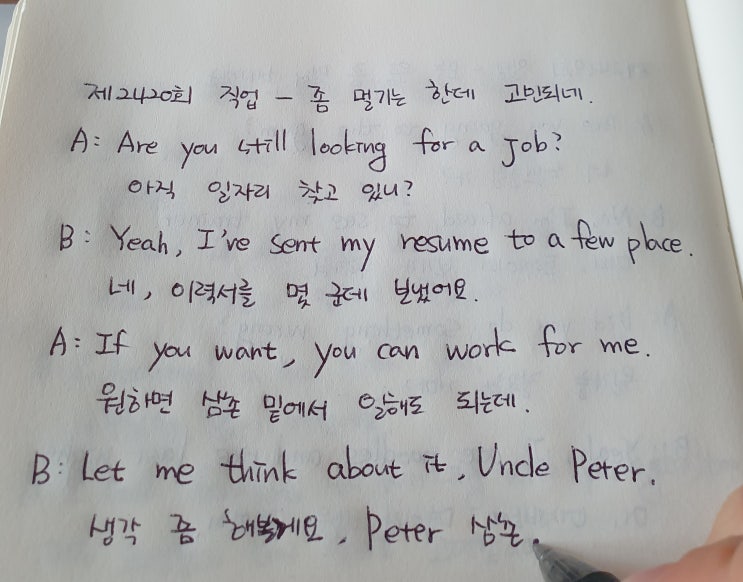 제2420회 직업 - 좀 멀기는 한데 고민되네.
A: Are you still looking for a job?
아직 일자리 찾고 있니?
B: Yeah, I've sent my resume to a few place.
네, 이력서를 몇 군데 보냈어요.
A: If you want, you can work for me.
원하면 삼촌 밑에서 일해도 되는데.
B: Let me think about it, Uncle Peter.
생각 좀 해볼게요, Peter 삼촌.